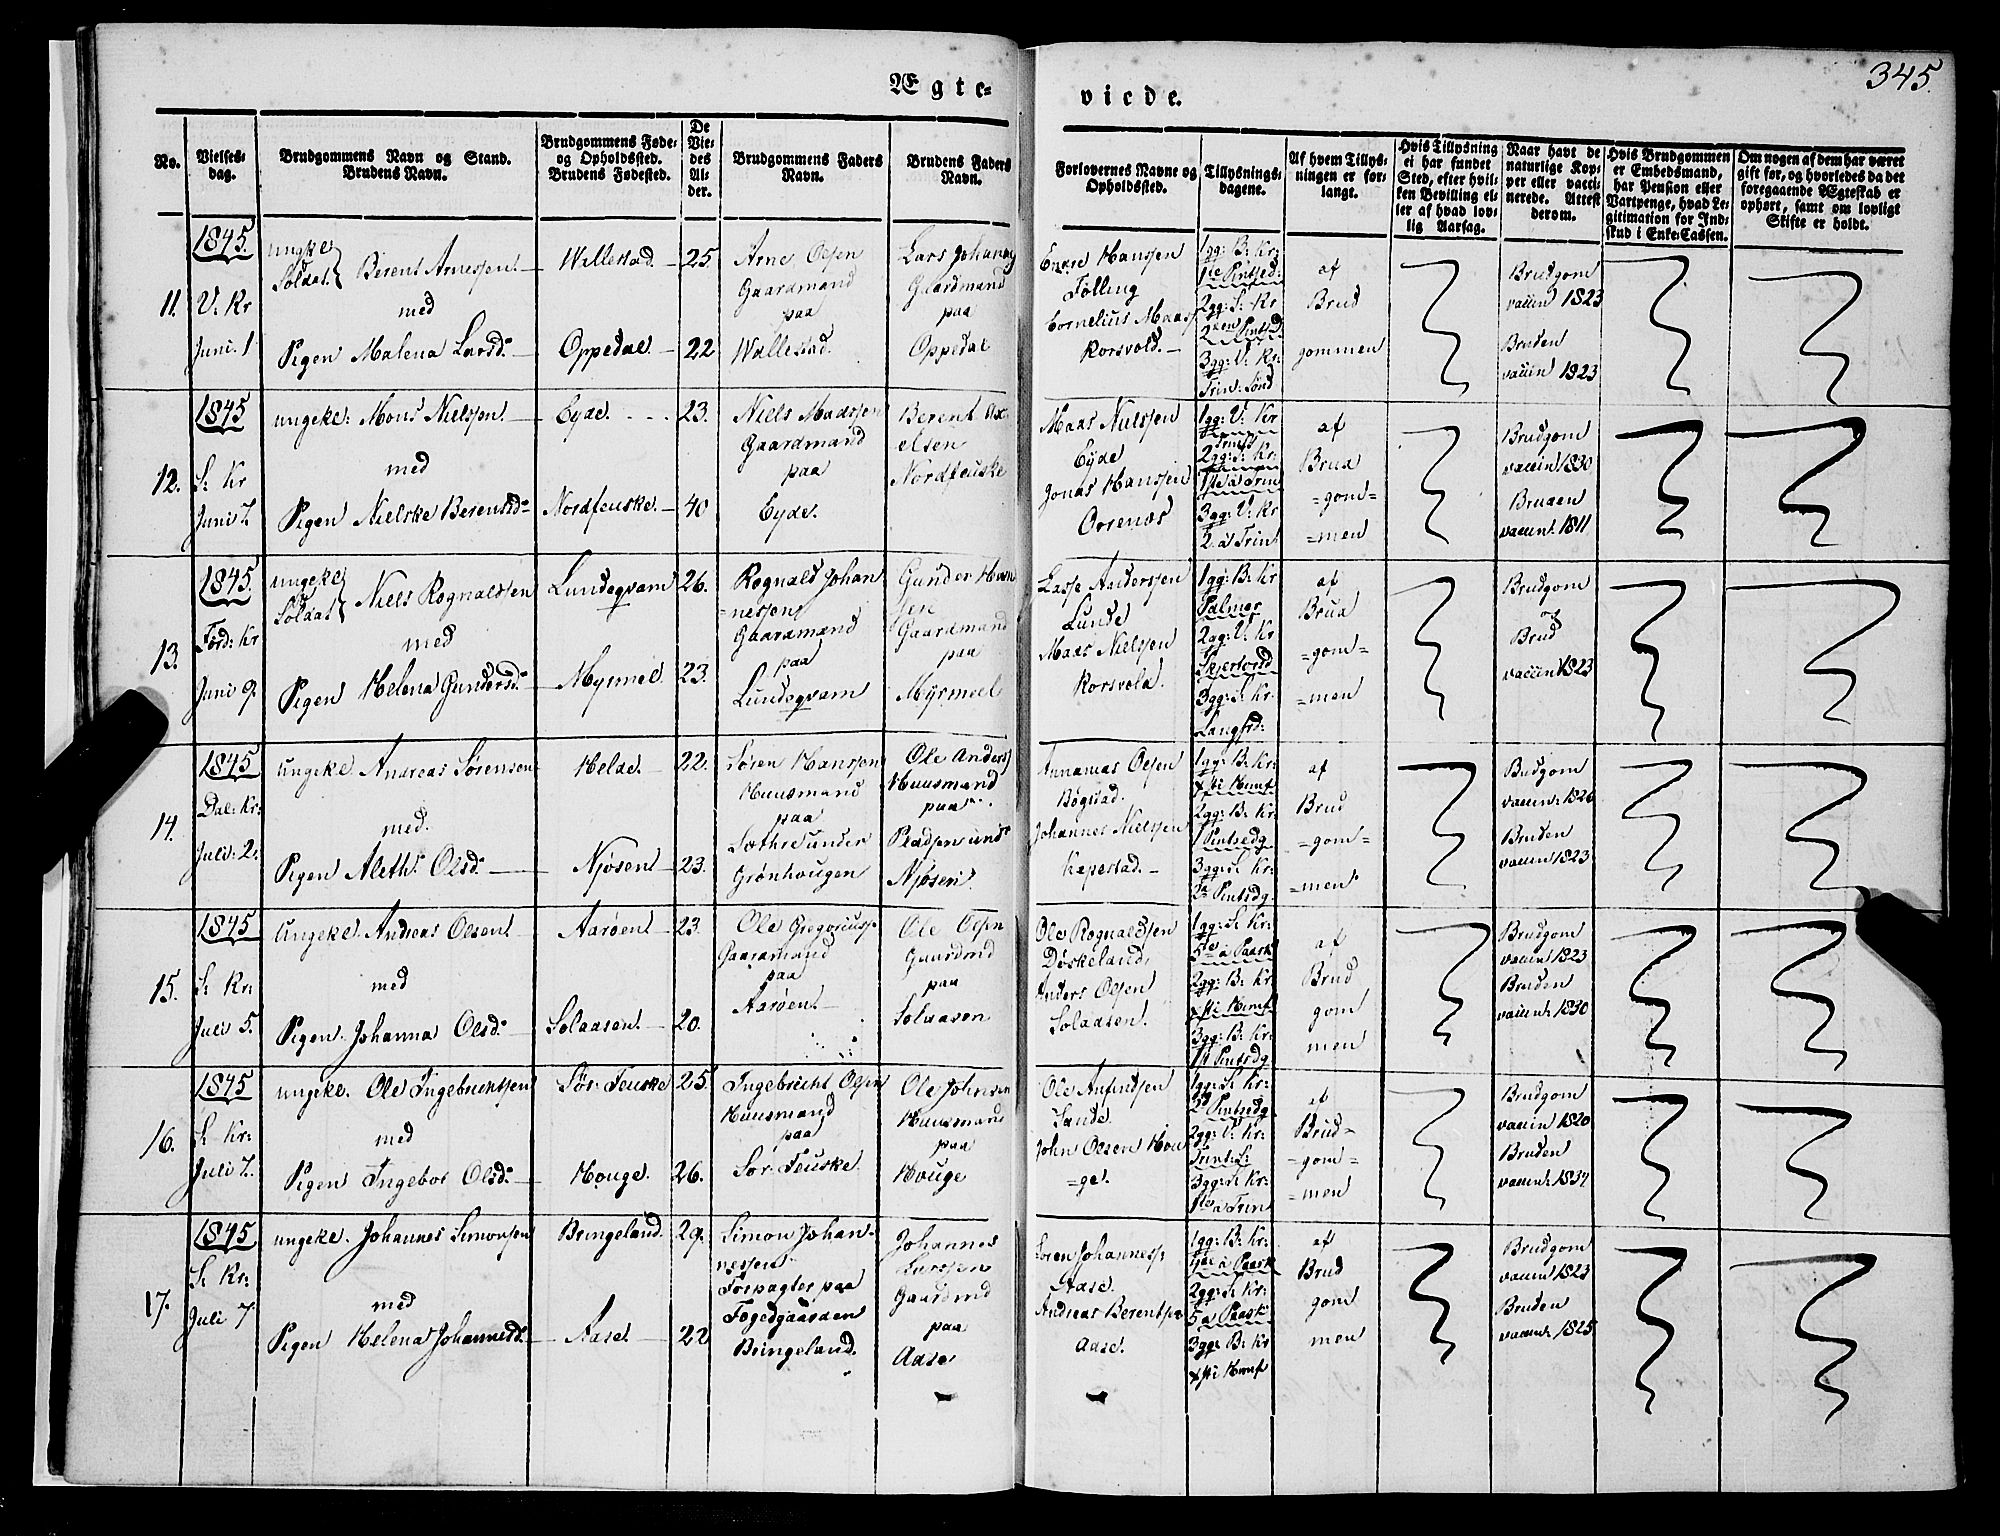 Ægte-
viede.
345.
No.
Vielses-
dag.
Brudgommens Navn og Stand.
Brudens Navn.
Brudgommens Føde-
og Opholdssted.
Brudens Fødested.
De
Vie-
des
Al-
der.
Brudgommens Faders
Navn.
Brudens Faders
Navn.
Forlovernes Navne og
Opholdssted.
Tillysnings-
dagene.
Af hvem Tillys-
ningen er for-
langt.
Hvis Tillysning
ei har fundet
Sted, efter hvil-
ken Bevilling el-
ler af hvad lov-
lig Aarsag.
Naar havt de
naturlige Kop-
per eller vacci-
nerede. Attest
derom.
Hvis Brudgommen
er Embedsmand,
har Pension eller
Vartpenge, hvad Le-
gitimation for Ind-
skud i Enke-Cassen.
Om nogen af dem har været
gift før, og hvorledes da det
foregaaende Ægteskab er
ophørt, samt om lovligt
Skifte er holdt.
11.
1845.
V. Kr
Juni. 1
ungke
Soldat Berent Arnessen
med
Pigen Malena Larsd:
Wallestad
Oppedal
25
22
Arne Olsen
Gaardmand
paa
Wallestad
Gaardmand
paa
Oppedal
Hanssen
Følling
Cornelius Maass
Korsvold.
1gg: B: Kr:
1te Pintsed:
2gg: S: Kr
3gg: V: Kr:
Trin: Sønd
af
Brud
gommen
Brudgom
vaccin 1823
Bruden
vaccin 1823
12.
1845
S. Kr
Juni 7.
ungke: Mons Nielssen
med
Pigen Nielske Berensd:
Eyde
Nordfeuske
23.
40
Niels Madssen
Gaardmand
paa
Eyde.
Berent Ax
elsen
Nordfeuske
Maas Nielssen
Eyde
Jonas Hanssen
Oorenæs
1gg: V: Kr
2gg: S: Kr:
1te a Trin
3gg: V: Kr
2 a Trin:
af
Brud
=gom=
=men
Brudgom
vaccin 1830
Bruden
vaccin: 1811
13.
1845.
Førd: Kr
Juni 9.
ungke
Soldat Niels Rognaldssen
med
Pigen Helena Gundersd:
Lundeqvam
Myrmel
26.
23.
Rognald Johan
=nessen
Gaardmand
paa
Lundeqvam
Gunder Han
sen
Gaardmand
paa
Myrmeel
Lasse Anderssen
Lunde
Maas Nielssen
Korsvold.
1gg: B: Kr
Palmes
2gg: V: Kr
3gg: S: Kr:
Langfrd:
af
Brud
=gom=
=men
Brudgom
Brud
vaccin 1823
14.
1845
Dal: Kr:
Juli: 2.
ungke. Andreas Sørensen
med.
Pigen Aleth: Olsd:
Helde
Njøsen
22.
23.
Søren Hanssen
Huusmand
paa
Sæthre under
Grønhougen
Ole Anders
Huusmand
paa
Pladsen und:
Njøsen
Annanias Olsen
Bøgstad.
Johannes Nielssen
Kapestad.
1gg: B: Kr:
Xsti Hemf
2gg: B: Kr:
1 Pintsedg
3gg: S: Kr:
2a Pintsdg
af
Brud
=gom=
=men
Budgom
vaccin: 1826
Bruden
vaccin 1823
15.
1845
S. Kr:
Juli 5.
Ungke. Andreas Olsen
med
Pigen. Johanna Olsd:
Aarøen
Solaasen
23.
20.
Ole Gregoriuss:
Gaardmand
paa
Aarøen
Ole Olsen
Gaardmd
paa
Solaasen
Ole Rognaldssen
Døskeland
Anders Olsen
Solaasen.
1gg: S: Kr:
5te a Paask
2gg: B: Kr
Xsti Hemf
3gg: B: Kr:
1ste Pintsdg
af
Brud
gom
men
Brudgom
vaccin 1823
Bruden
vaccin: 1830
16.
1845
S. Kr:
Juli 7.
ungke. Ole Ingebrichtsen
med
Pigen Ingebor Olsd:
Sør: Feuske
Houge.
25.
26.
Ingebricht Olsen
Huusmand
paa
Sør: Feuske.
Ole Johnsen
Huusmand
paa
Houge
Ole Anfindsen
Sande.
John Olsen Hou
=ge.
1gg: S: Kr:
2d Pintsedg
2gg: V: Kr:
Trint: S:
3gg: S: Kr:
1te a Trin
af
Brud=
=gom=
=men
Brudgom
vaccin 1820
Bruden
vaccin: 1834
17.
1845
S. Kr:
Juli 7
ungke. Johannes Simonsen
med
Pigen Helena Johannesd:
Bringeland
Aase
29.
22
Simon Johan-
nessen
Forpagter paa
Fogedgaarden
Bringeland.
Johannes
Larssen
Gaardmd
paa
Aase
Søren Johanness:
Aase.
Andreas Berentsen
Aase.
1gg: B: Kr:
4de a Paask
2gg: S: Kr:
5 a Paask
3gg: B: Kr
Xsti Hemf
af
Brud
gom
men
Brudgom
vaccin 1823
Bruden
vaccin: 1825